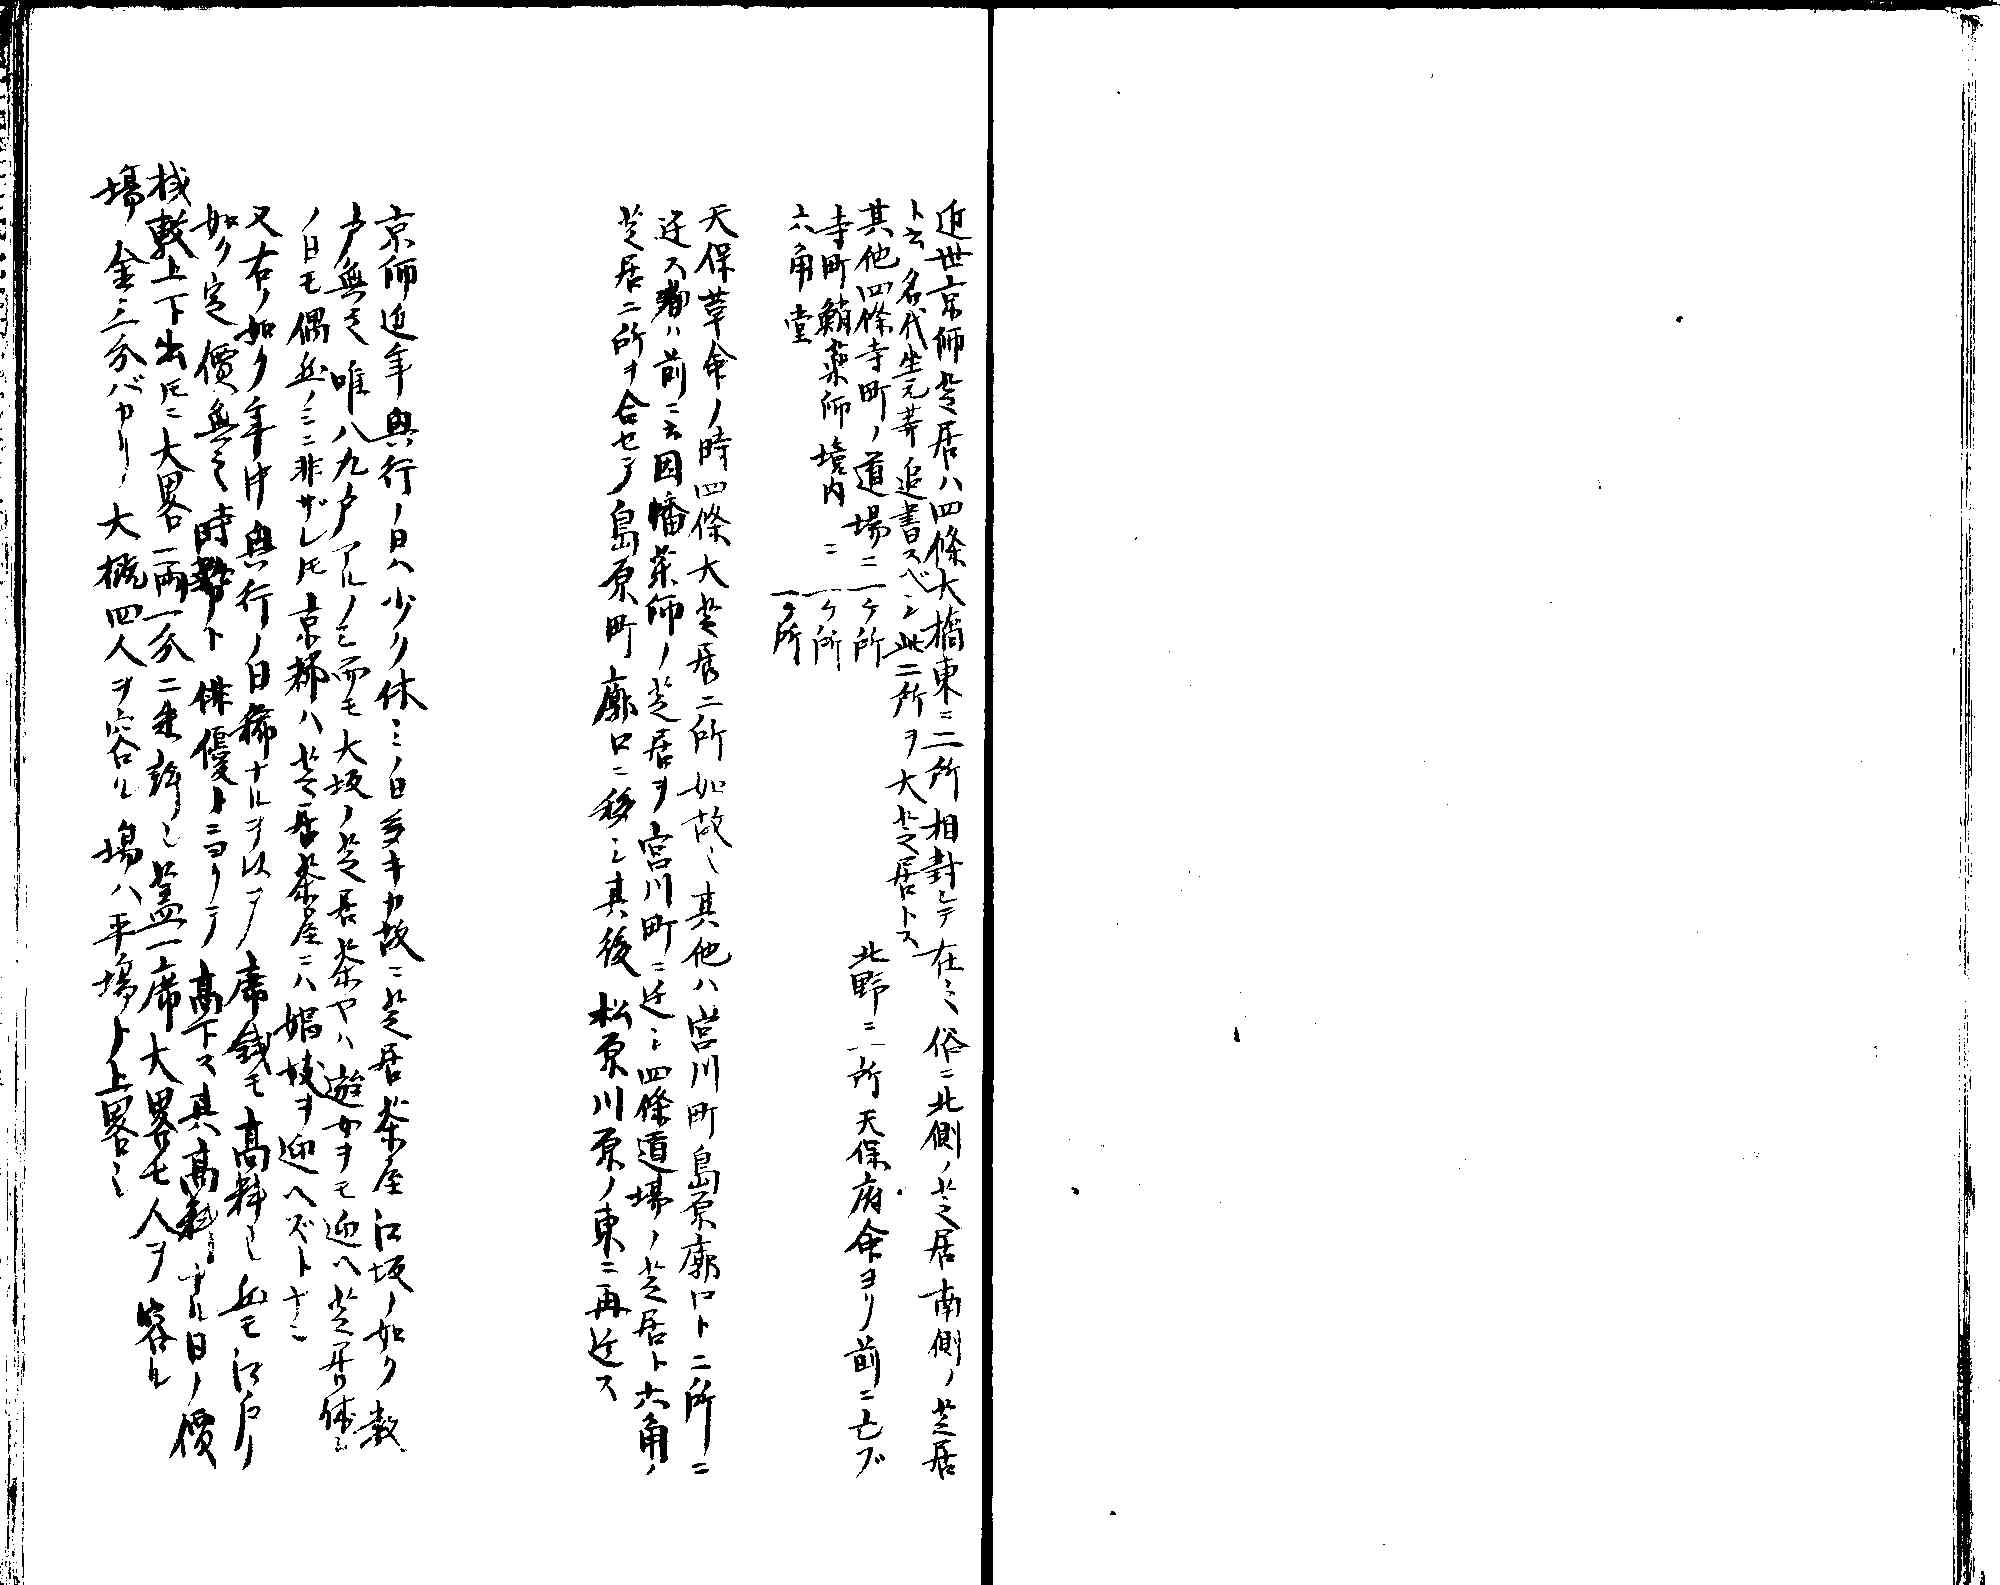 近世京師芝居ハ四條大橋東ニ二所相對シテ在ミ俗ニ北側ノ芝居南側ノ芝居
ト云名代坐元等追書スベシ此二所ヲ大芝居トス
其他四條寺町ノ道場ニ一ケ所 北野ニ一所天保府命ヨリ前ニ亡ブ
寺町蛸薬師境内ニ一ケ所
六角堂 一ケ所
天保革命ノ時四條大芝居二所如故シ其他ハ宮川町島原廓口ト二所ニ
迁ス者ハ前ニ云因幡薬師ノ芝居ヲ宮川町ニ迁シ四條道場ノ芝居ト六角ノ
芝居二所ヲ合セテ島原町廓口ニ移シ其後松原川原ノ東ニ再迁ス
京師近年興行ノ日ハ少ク休ミノ日多キカ故ニ芝居茶屋江坂ノ如ク数
戸無之唯八九戸アルノミ而モ大坂ノ芝居茶ヤハ遊女ヲモ迎ヘ芝居休
ノ日モ偶然ノミニ非ザレ𪜈京都ハ芝居茶屋ニハ娼妓ヲ迎ヘズトナシ
又右ノ如ク年中興行ノ日稀ナルヲ以テ席銭モ高料也然モ江戸ノ
如ク定價無之時勢ト俳優トニヨリテ高下ス其高料ナル日ノ價
桟敷上下出𪜈ニ大畧一両一分二朱許也蓋一席大畧七人ヲ容ル
場金三分バカリ大概四人ヲ容ル場ハ平場ト上畧シ